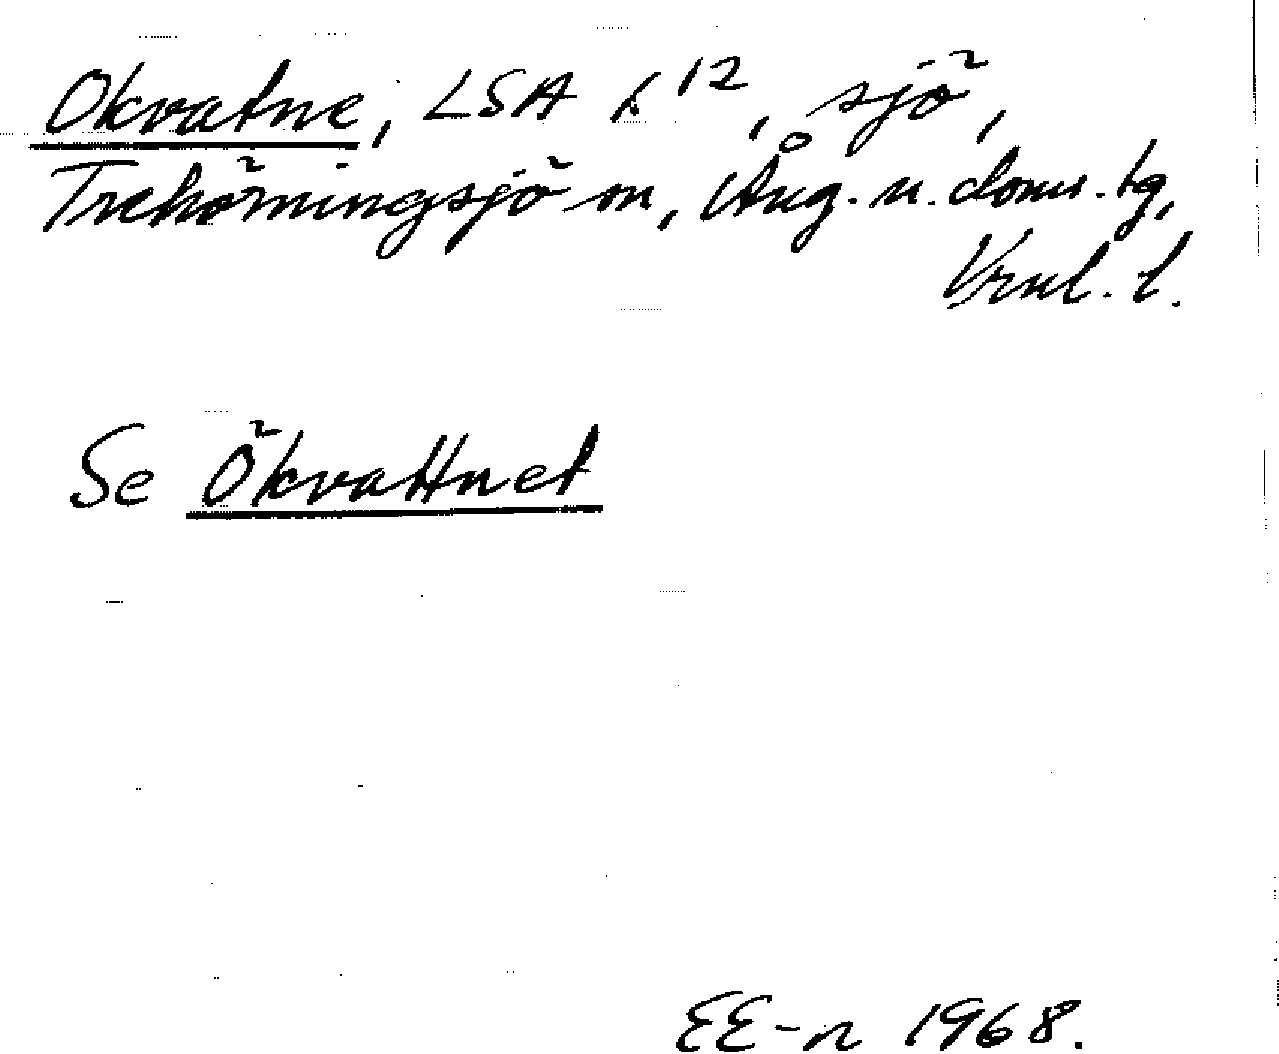 Okvatne, LSA L12, sjö,
Trehörningsjö sn, Ång. n. doms. tg,
Vrnl. l.
Se Ökvattnet
EE-n 1968.